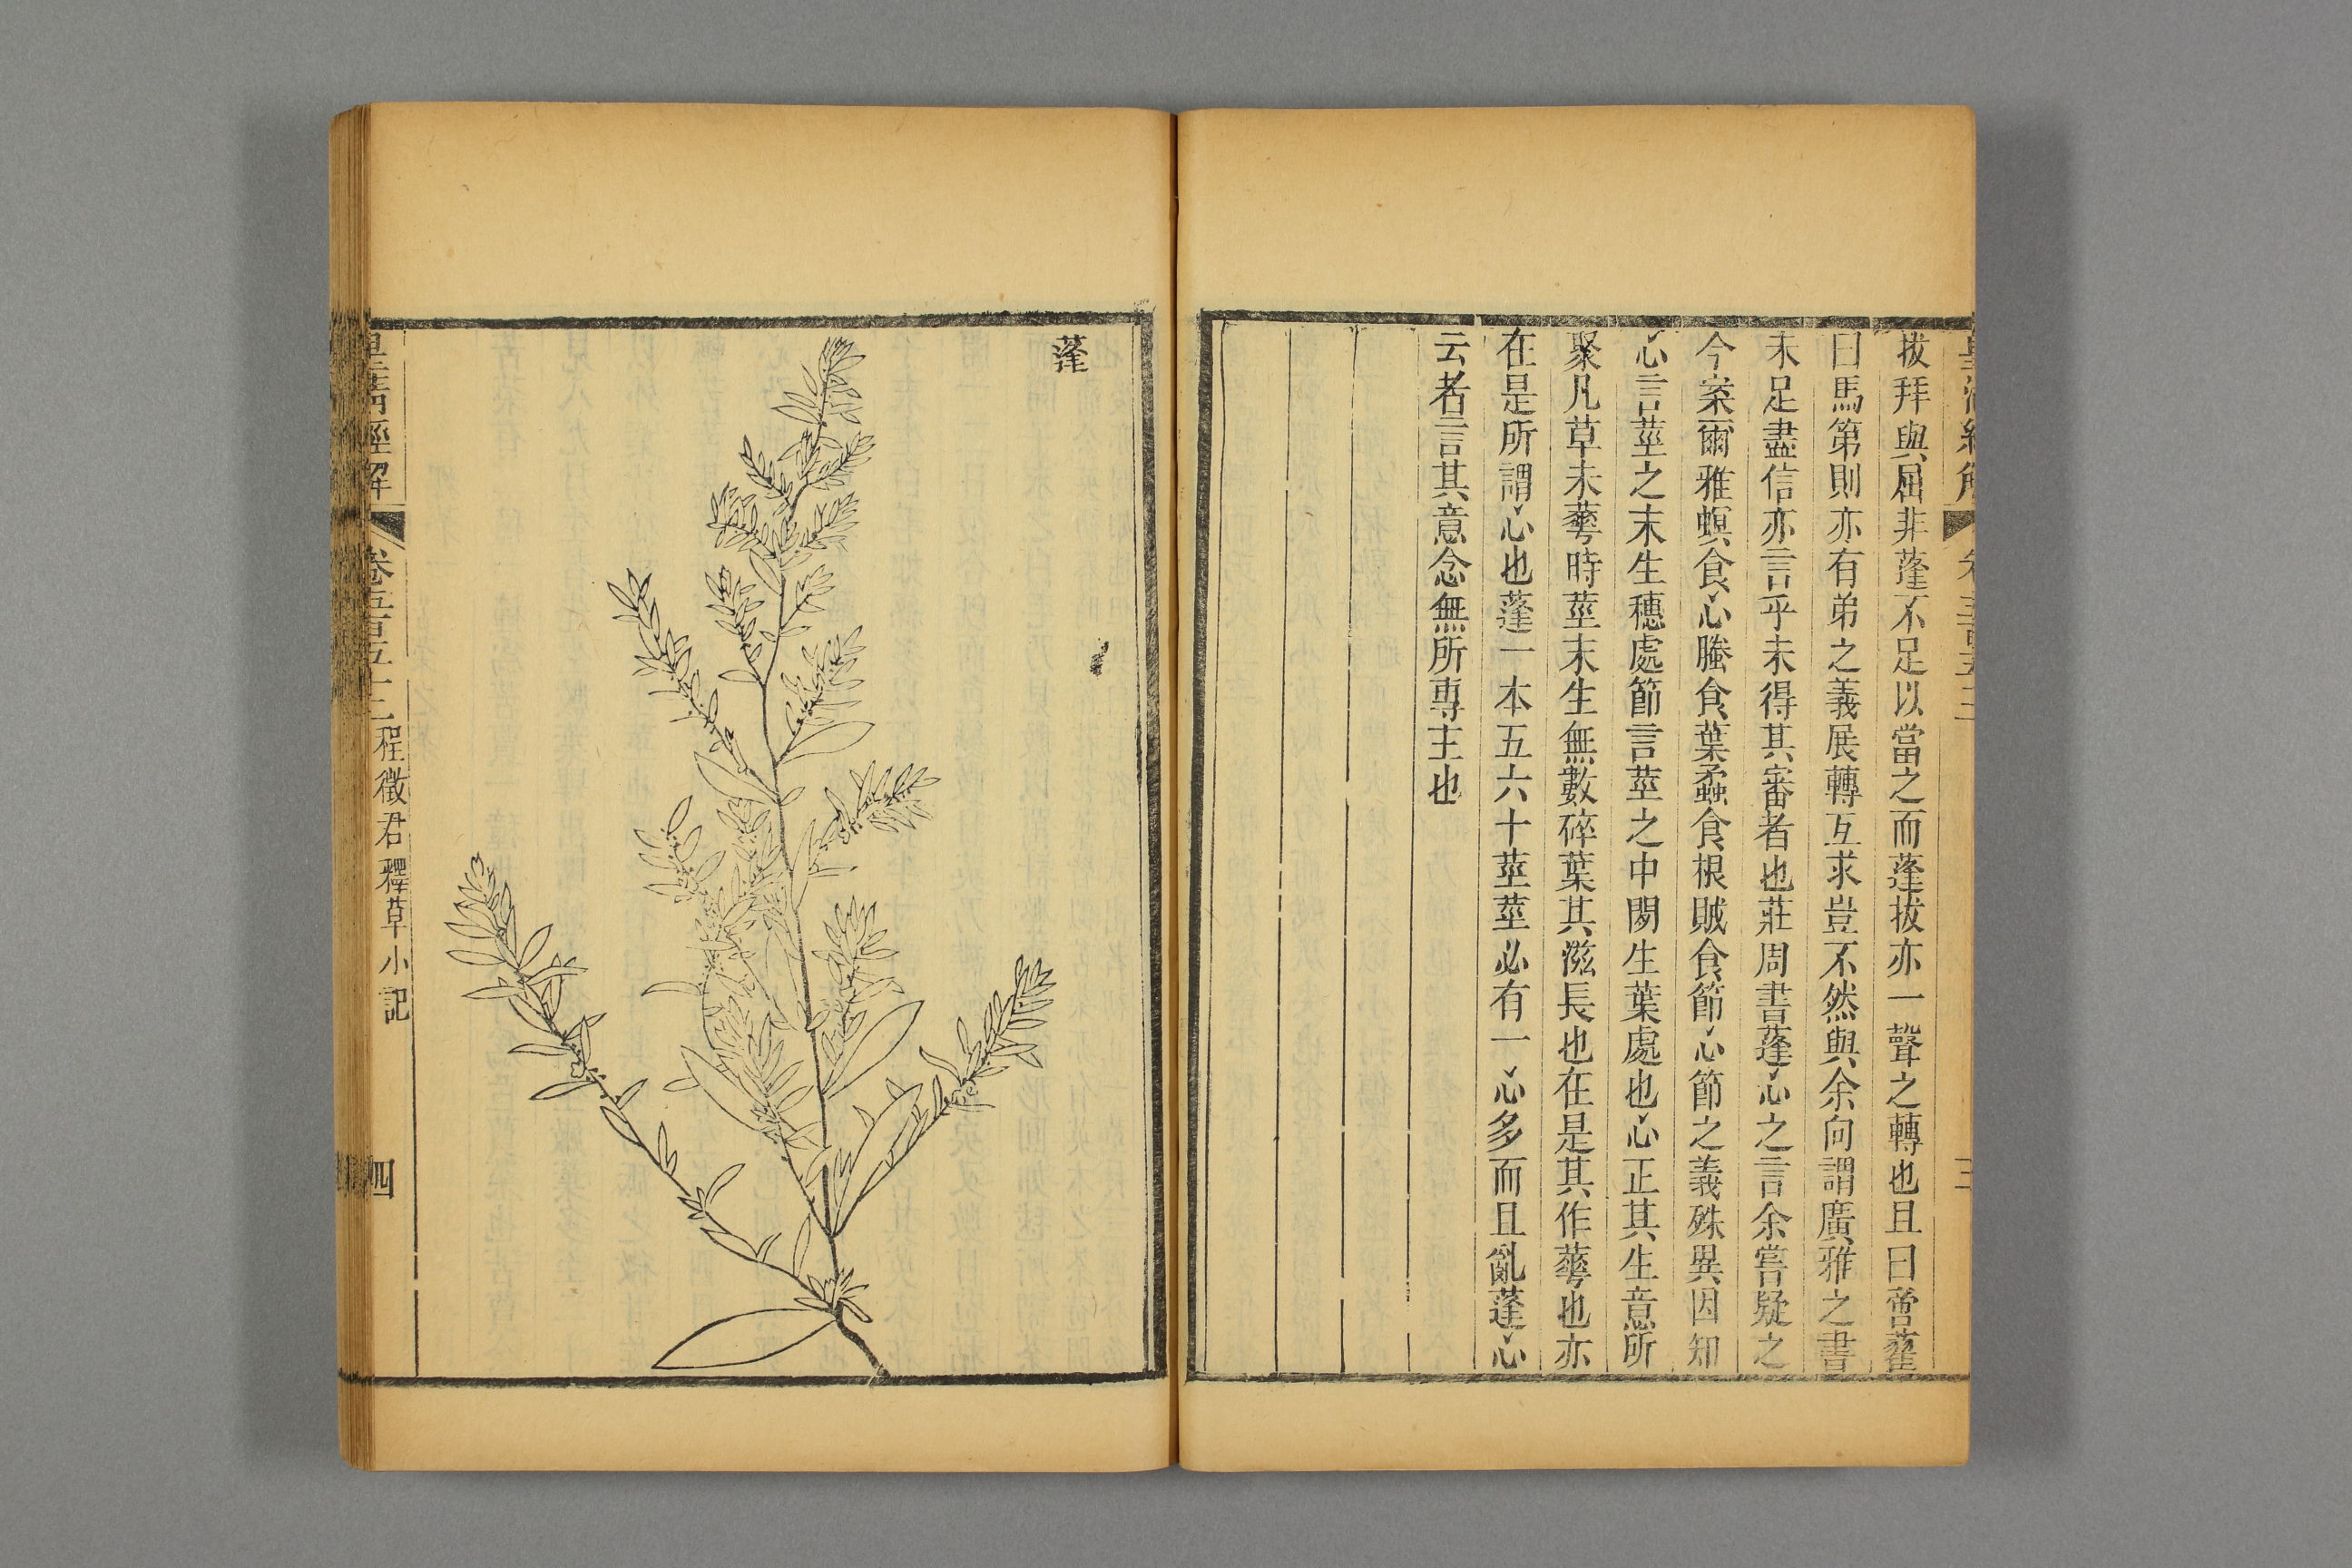 拔拜與屈非蓬不足以當之而蓬拔亦一聲之轉也且曰啻蓷
曰馬第則亦有弟之義展轉互求豈不然與余向謂廣雅之書
未足盡信亦言乎未得其審者也莊周書蓬心之言余嘗疑之
今案爾雅螟食心螣食葉蟊食根賊食節心節之義殊異因知
心言莖之末生穗處節言莖之中閒生葉處也心正其生意所
聚凡草未蕚時莖末生無數碎葉其滋長也在是其作蕚也亦
在是所謂心也蓬一本五六十莖莖必有一心多而且亂蓬心
云者言其意念無所專主也
蓬
皇清經解
卷五百五十三
程徵君釋草小記
四